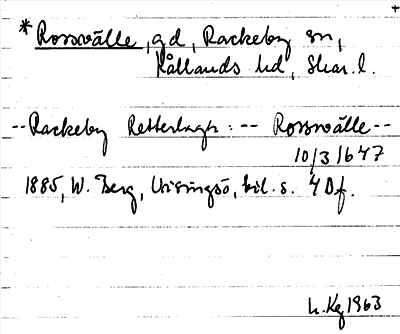 +
*Rossvälle, gd, Rackeby sn,
Kållands hd, Skar. l.
-- Rackeby Retterlagh: -- Rossvälle --
10/3 1647
1885, W. Berg, Visingsö, bil. s. 4 Df.
L. Kg 1963